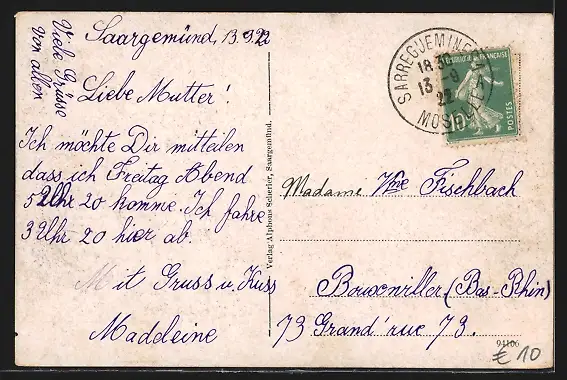 Saargemünd, 13.9.22
Viele Grüsse
von allen
Liebe Mutter!
Ich möchte Dir mitteilen
dass ich Freitag Abend
5 Uhr 20 komme. Ich fahre
3 Uhr 20 hier ab.
Mit Gruss u. Kuss
Madeleine
Verlag Alphons Scherier, Saargemünd.
18
13 -9
22
POSTES
Madame Vve Fischbach
Bouxwiller (Bas-Rhin)
73 Grand'rue 73.
94106
€ 10